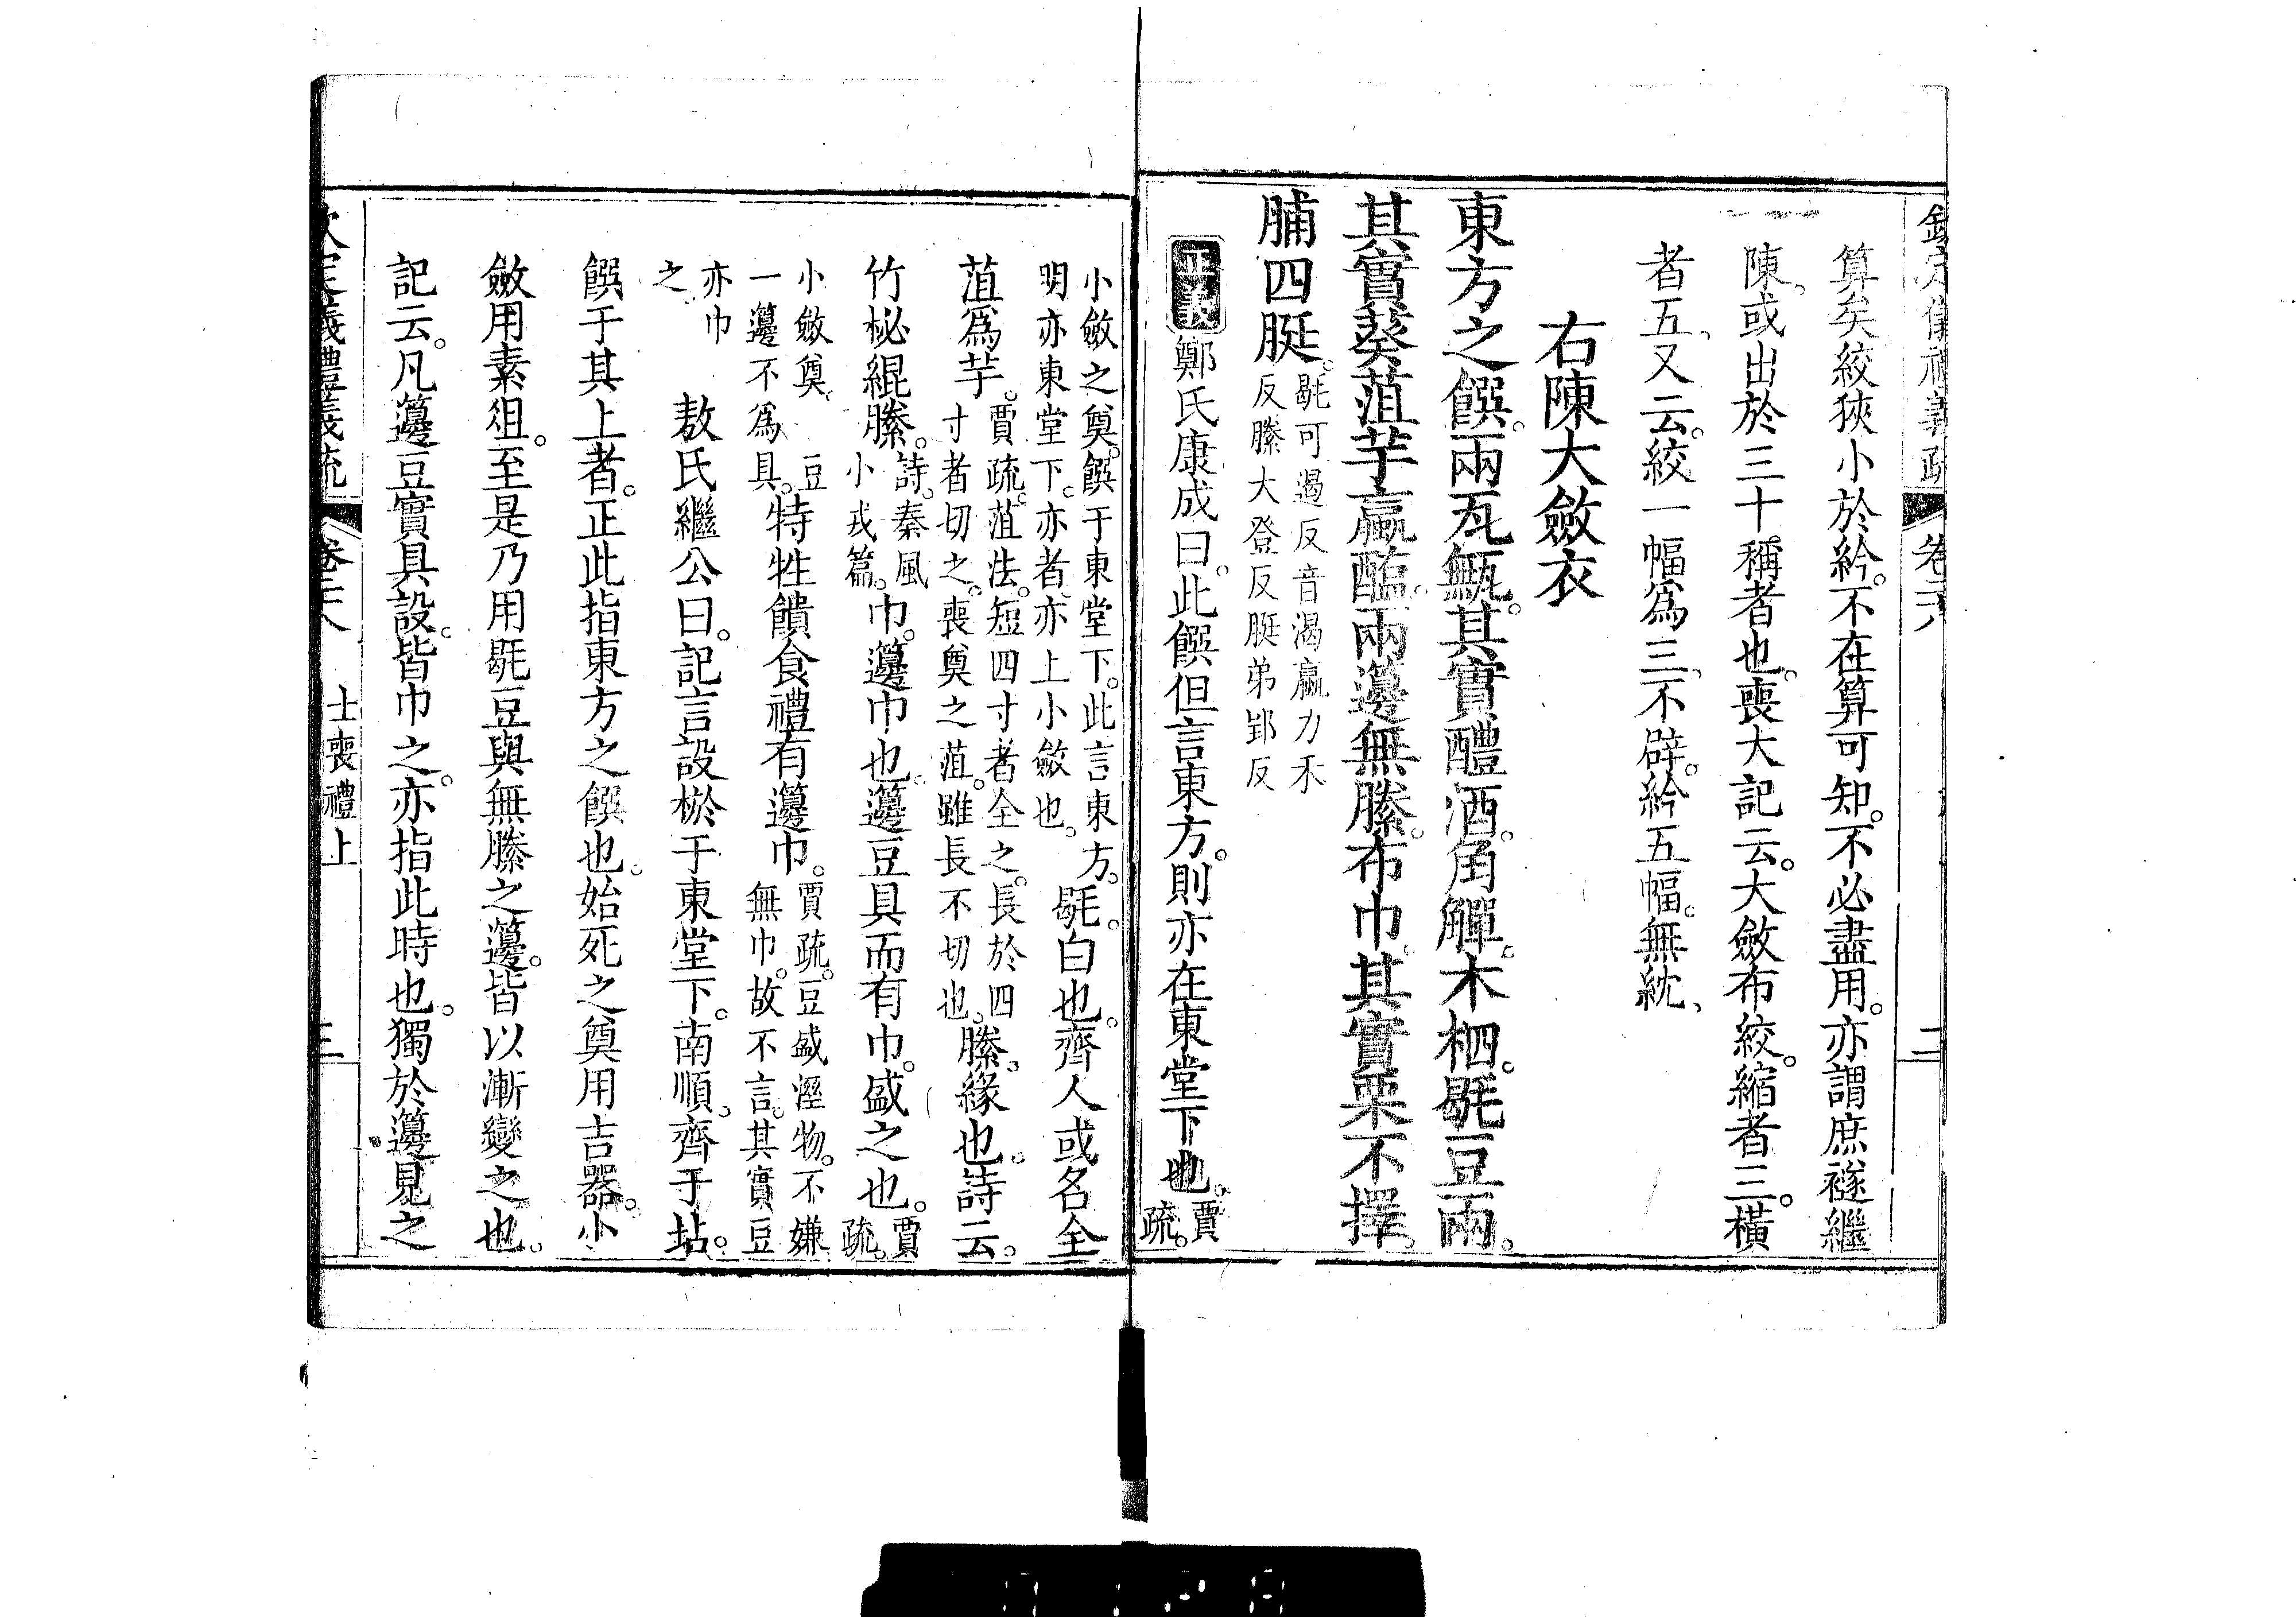 欽定儀禮義疏 卷二十八 二
算矣絞狹小於紟。不在算可知。不必盡用。亦謂庶襚繼
陳。或出於三十稱者也。喪大記云。大斂布絞。縮者三。橫
者五、又云。絞一幅爲三、不辟。紟五幅。無紞、
右陳大斂衣
東方之饌。兩瓦甒。其實醴酒。角觶。木柶。毼豆兩。
其實葵菹芋。蠃醢。兩籩無縢。布巾。其實栗不擇。
脯四脡。毼可遏反音渴蠃力禾
反縢大登反脡弟郢反
正義鄭氏康成曰。此饌但言東方。則亦在東堂下也。賈
疏。
小斂之奠。饌于東堂下。此言東方。
明亦東堂下。亦者亦上小斂也。毼。白也。齊人或名全
菹爲芋。賈疏。菹法。短四寸者全之。長於四
寸者切之。喪奠之菹。雖長不切也。縢。緣也。詩云。
竹柲緄縢。詩。秦風
小戎篇。巾。籩巾也。籩豆具而有巾。盛之也。賈
疏。
小斂奠。豆
一籩不爲具。特牲饋食禮有籩巾。賈疏。豆盛溼物。不嫌
無巾。故不言。其實豆
亦巾
之、敖氏繼公曰。記言設棜于東堂下。南順。齊于坫。
饌于其上者。正此指東方之饌也。始死之奠用吉器。小
斂用素俎。至是乃用毼豆與無縢之籩。皆以漸變之也。
記云。凡籩豆實具設。皆巾之。亦指此時也。獨於籩見之
欽定儀禮義疏 卷二十八 士喪禮上 三